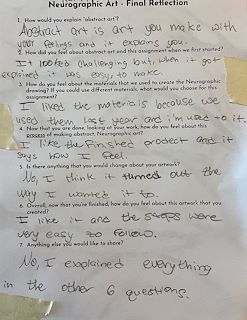 Neurographic Art - Final Reflection
1. How would you explain "abstract art"?
Abstract art is art you make with
your feelings and it explains you.
2. How did you feel about abstract art and this assignment when we first started?
It looked challenging but, when it got
explained it was easy to make.
3. How do you feel about the materials we used to create the Neurographic
drawing? If you could use different materials, what would you choose for this
assignment?
I liked the materials because we
used them last year and i'm used to it.
4. Now that you are done, looking at your work, how do you feel about this
process of making abstract, Neurographic art?
I like the finished prodect and it
says how I feel.
5. Is there anything that you would change about your artwork?
No, I think it turned out the
way I wanted it to.
6. Overall, now that you're finished, how do you feel about this artwork that you
created?
I like it and the steps were
very easy to follow.
7. Anything else you would like to share?
No, I explained everything
in the other 6 questions.